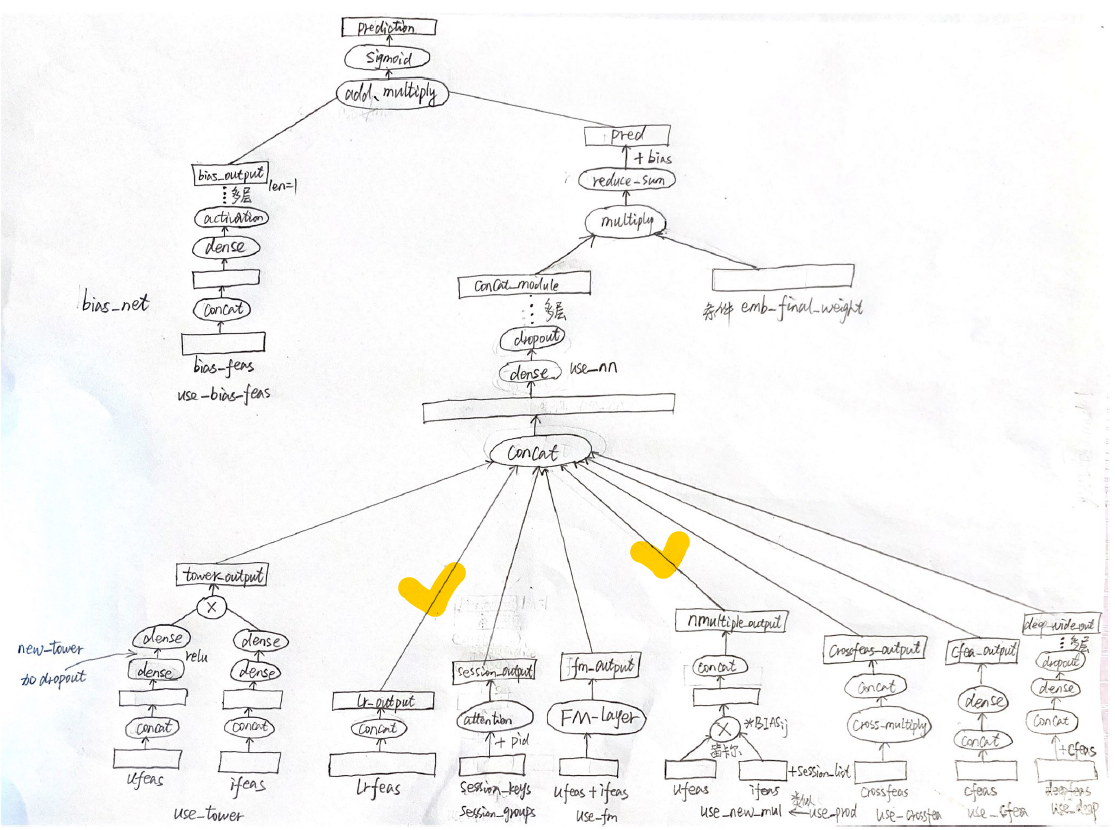 prediction
Sigmoid
add、multiply
pred
+ bias
reduce-sum
multiply
bias_output
len=1
多层
activation
dense
concat
bias_net
bias-feas
use-bias-feas
concat_module
多层
dropout
dense
use_nn
条件 emb-final_weight
concat
tower_output
×
dense
dense
relu
dense
dense
new_tower
加dropout
concat
concat
ufeas
ifeas
use_tower
lr_output
concat
lrfeas
session_output
attention
+ pid
session_keys
session_groups
fm_output
FM-Layer
ufeas + ifeas
use-fm
nmultiple_output
concat
×
*BIASij
+session_list
ufeas
ifeas
use_new_mul
use_prod
Crossfeas_output
concat
Cross-multiply
Crossfeas
use-crossfea
Cfea_output
dense
concat
cfeas
use_Cfea
deep_wide_out
多层
dropout
dense
concat
+Cfeas
deepfeas
use_deep